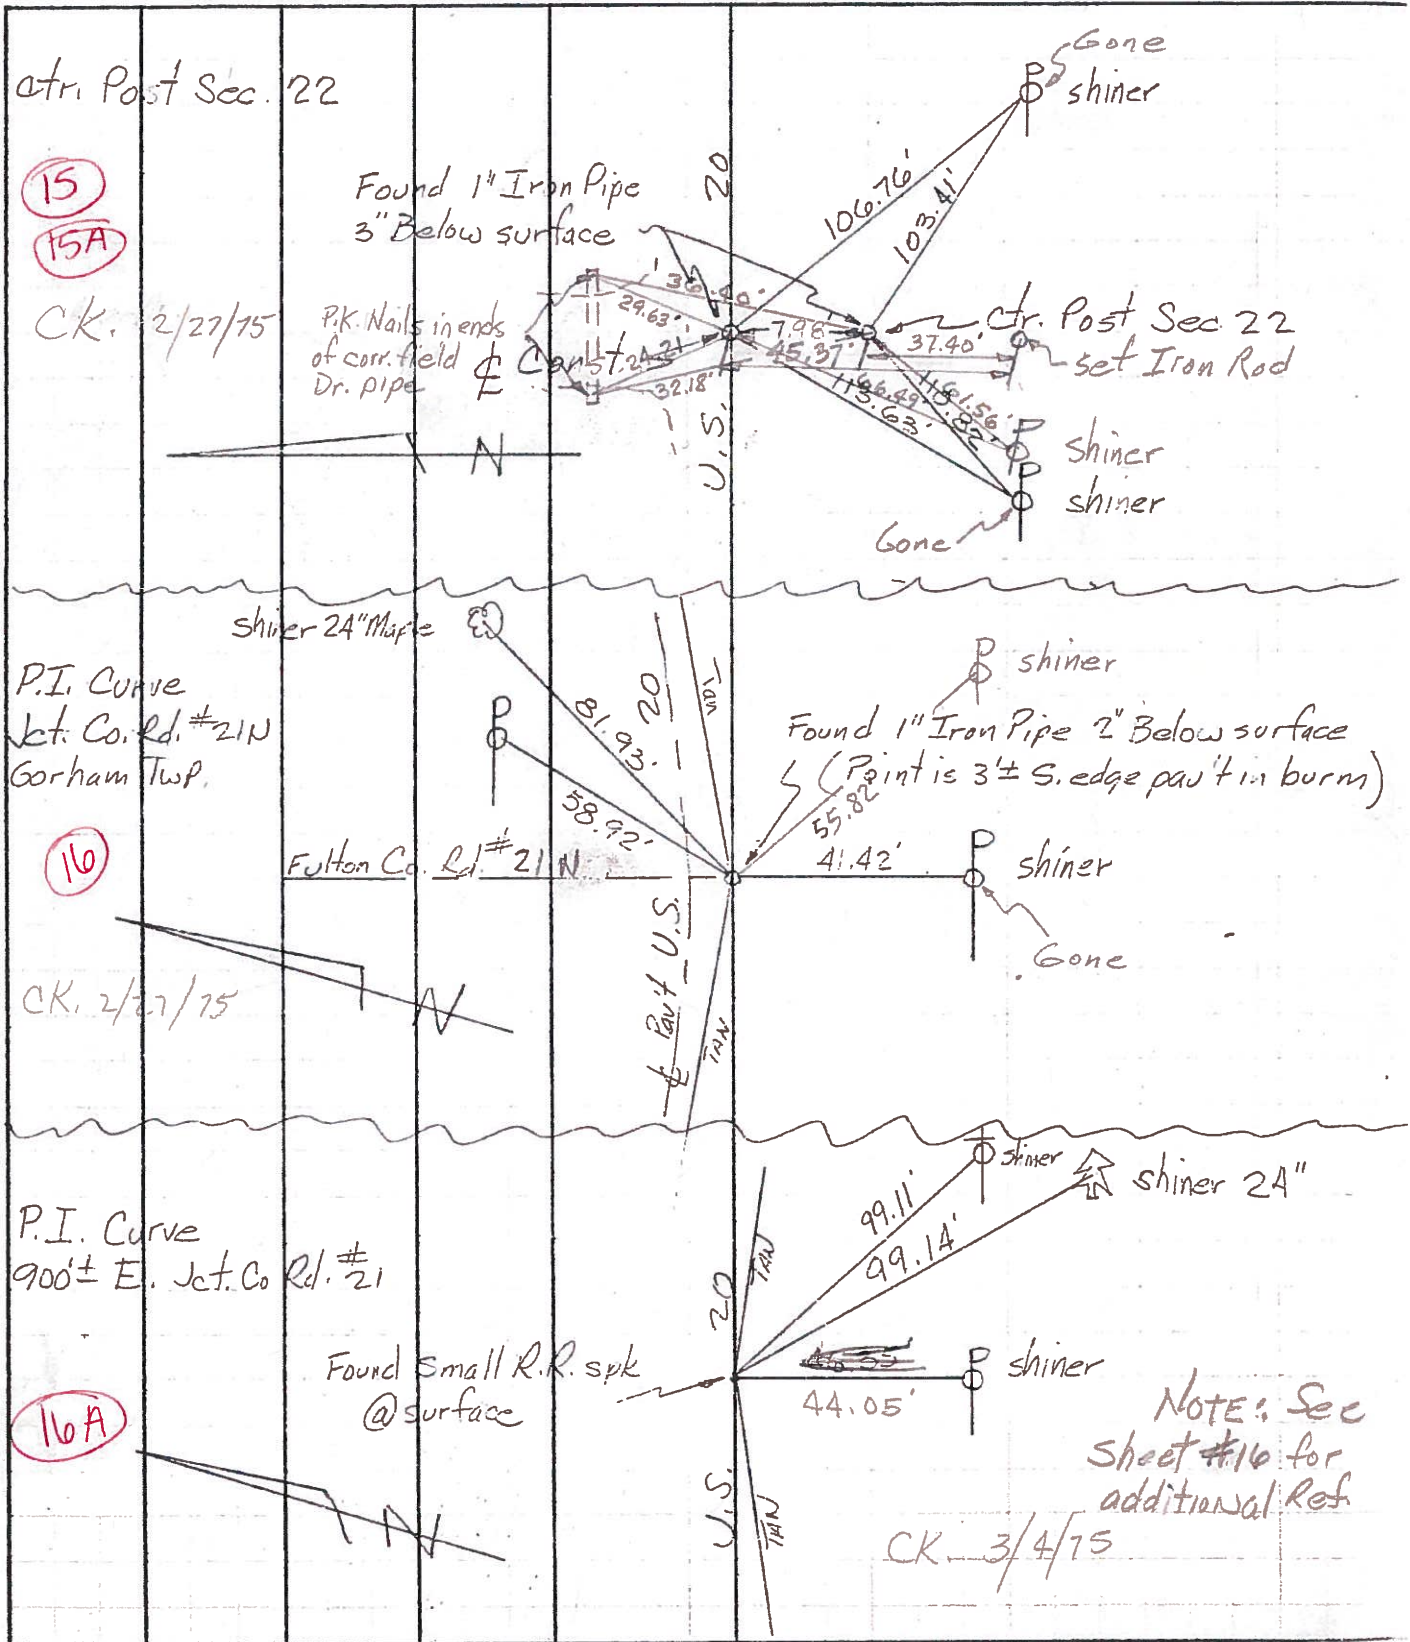 Ctr. Post Sec. 22
15
15A
CK. 2/27/75
Found 1" Iron Pipe
3" Below surface
P.K. Nails in ends
of corr. field
Dr. pipe
℄ Const.
N
U.S. 20
106.76'
103.41'
36.40'
29.63'
24.21'
32.18'
7.98'
45.37'
37.40'
66.49'
113.63'
61.56'
Gone
P
shiner
Ctr. Post Sec 22
set Iron Rod
P
shiner
P
shiner
Gone
shiner 24" Maple
P.I. Curve
Jct. Co. Rd. #21N
Gorham Twp.
16
CK. 2/27/75
N
P
81.93'
58.92'
Fulton Co. Rd. #21 N
℄ Pav't U.S. 20
Tan
TAN
P
shiner
Found 1" Iron Pipe 2" Below surface
(Point is 3'± S. edge pav't in burm)
55.82'
41.42'
P
shiner
Gone
P.I. Curve
900'± E. Jct. Co Rd. #21
16A
Found Small R.R. spk
@ surface
N
U.S. 20
TAN
TAN
99.11'
99.14'
shiner
shiner 24"
44.05'
P
shiner
NOTE: See
Sheet #16 for
additional Ref.
CK. 3/4/75